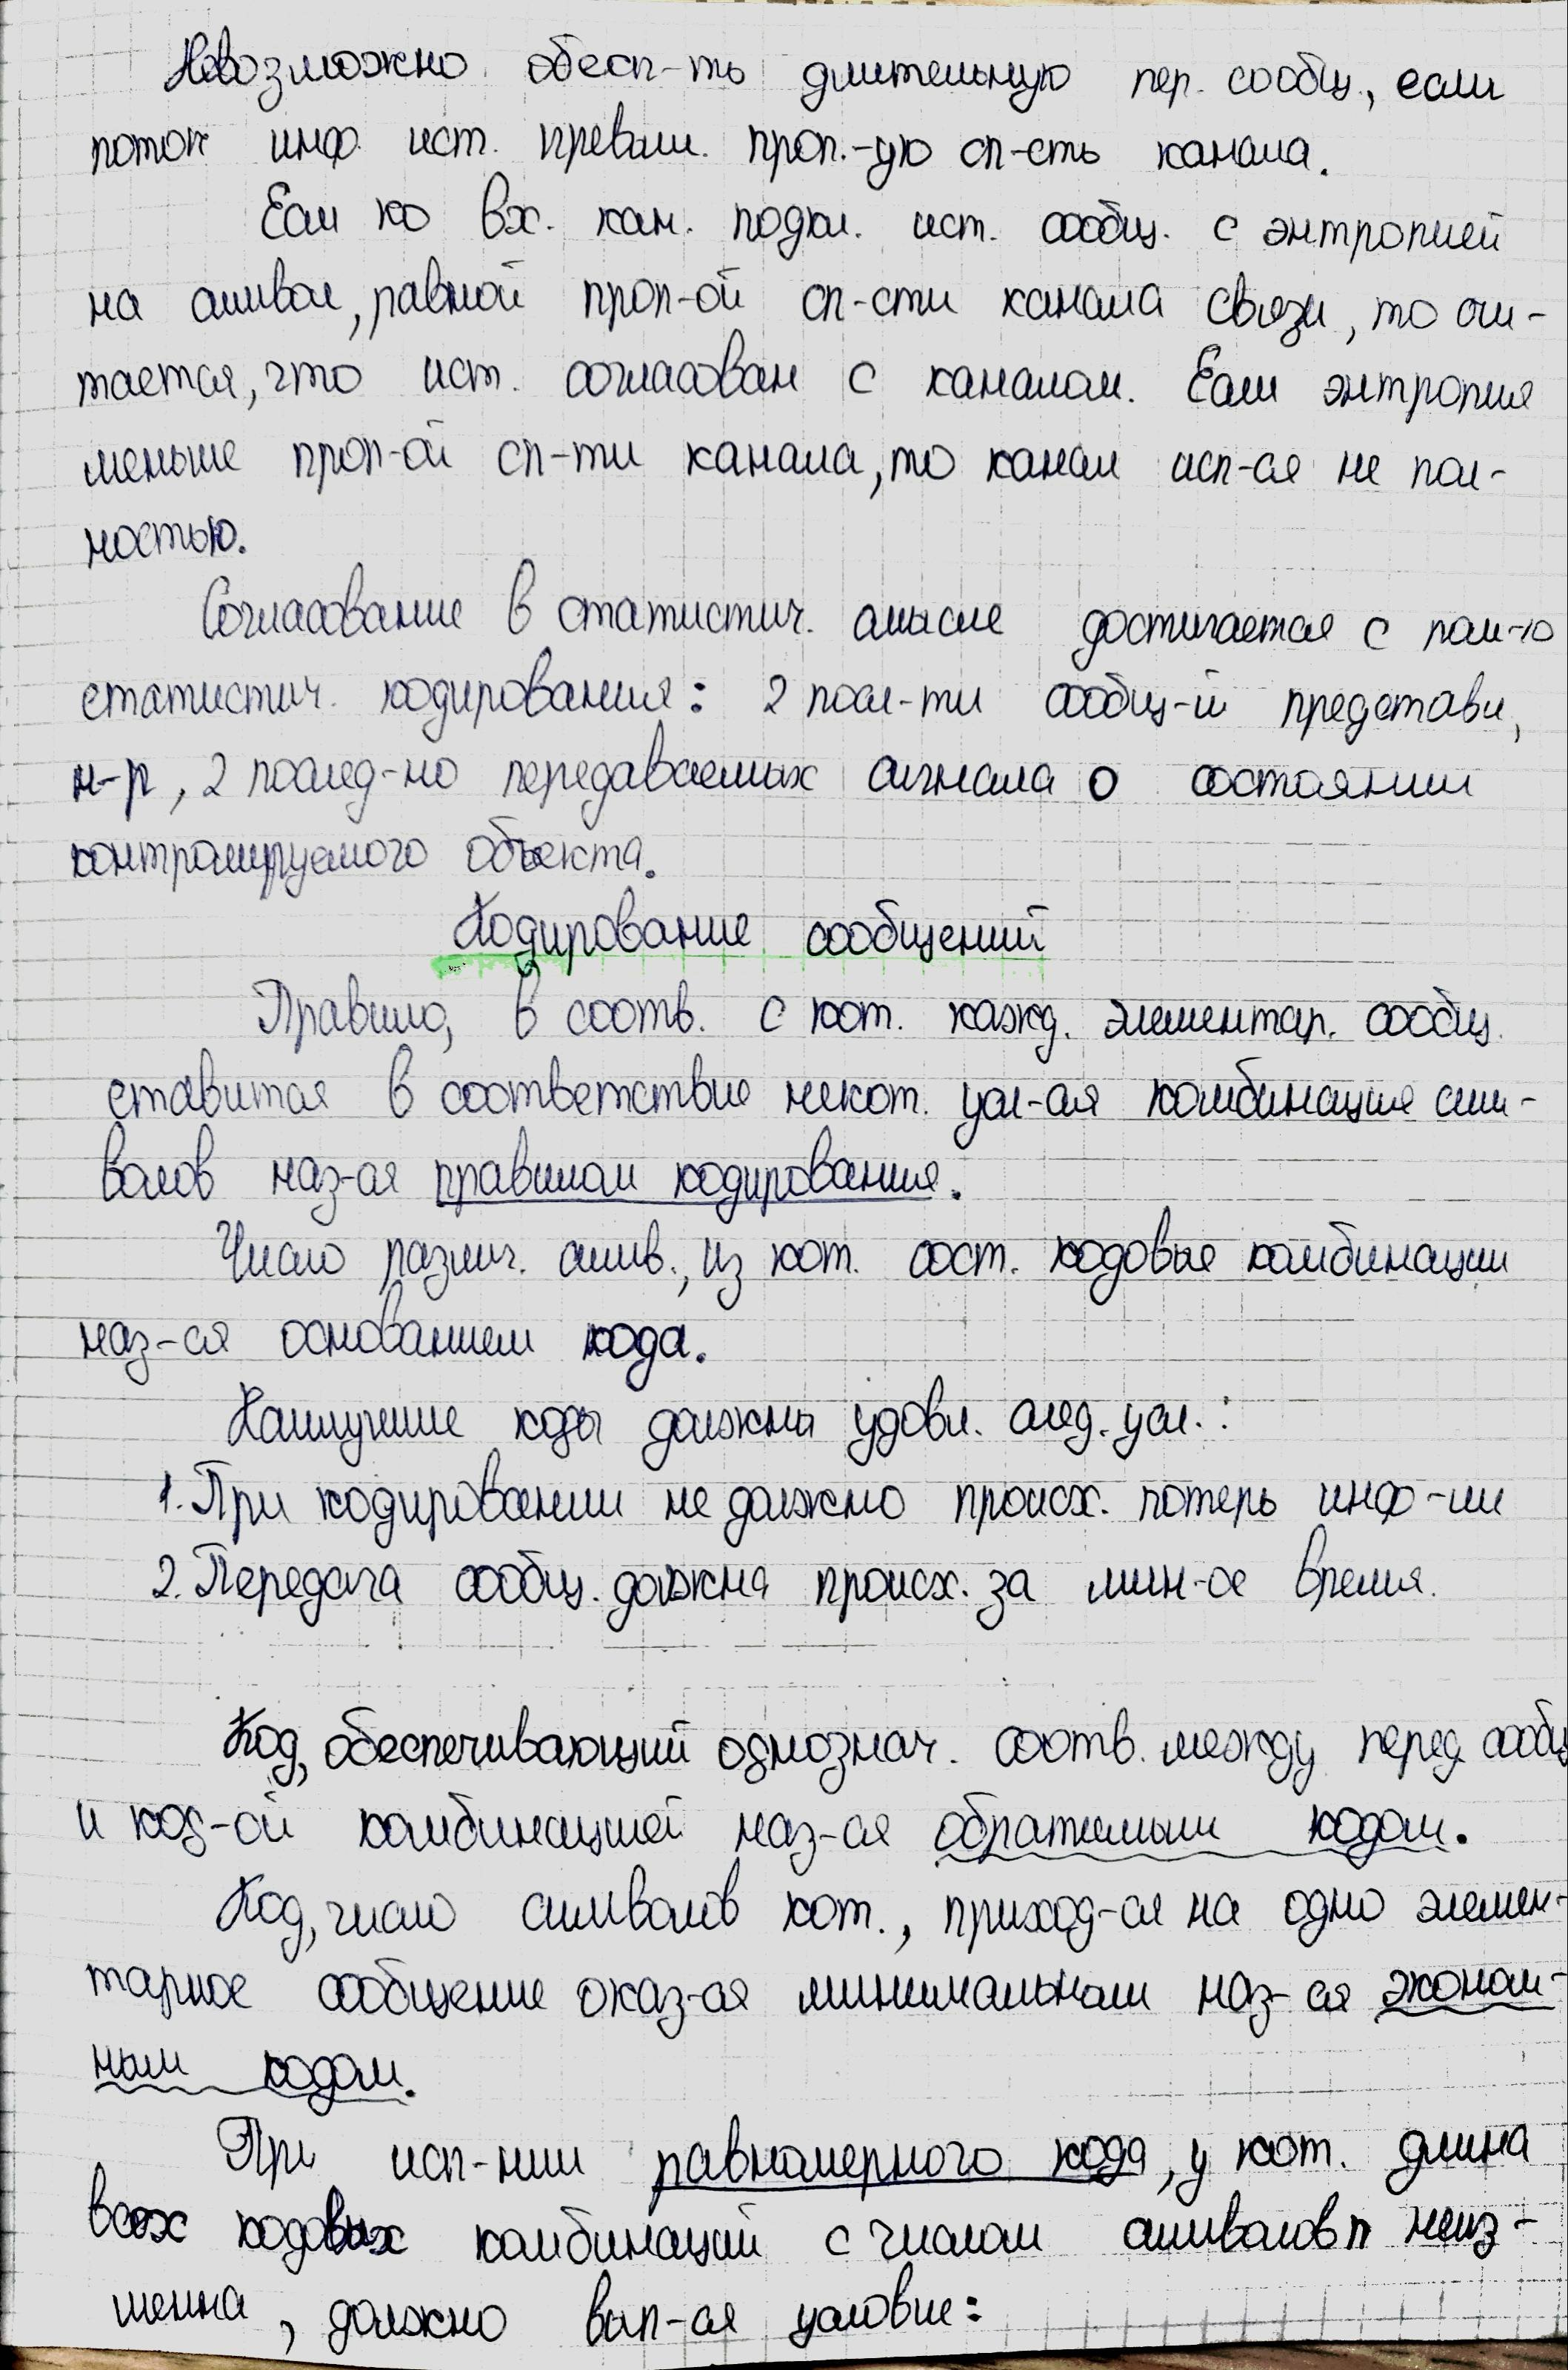 Невозможно обесп-ть длительную пер. сообщ., если
поток инф. ист. превыш. проп.-ую сп-сть канала.
Если ко вх. кан. подкл. ист. сообщ. с энтропией
на символ, равной проп-ой сп-сти канала связи, то счи-
тается, что ист. согласован с каналом. Если энтропия
меньше проп-ой сп-ти канала, то канал исп-ся не пол-
ностью.
Согласование в статистич. смысле достигается с пом-ю
статистич. кодирования: 2 посл-ти сообщ-й представл,
н-р, 2 послед-но передаваемых сигнала о состоянии
контролируемого объекта.
Кодирование сообщений
Правило, в соотв. с кот. кажд. элементар. сообщ.
ставится в соответствие некот. усл-ая комбинация сим-
волов наз-ся правилом кодирования.
Число различ. симв., из кот. сост. кодовые комбинации
наз-ся основанием кода.
Наилучшие коды должны удовл. след. усл.:
1. При кодировании не должно происх. потерь инф-ии
2. Передача сообщ. должна происх. за мин-ое время.
Код, обеспечивающий однознач. соотв. между перед. сообщ
и код-ой комбинацией наз-ся обратимым кодом.
Код, число символов кот., приход-ся на одно элемен-
тарное сообщение оказ-ся минимальным наз-ся эконом-
ным кодом.
При исп-нии равномерного кода, у кот. длина
всех кодовых комбинаций с числом символов n неиз-
менна, должно вып-ся условие: